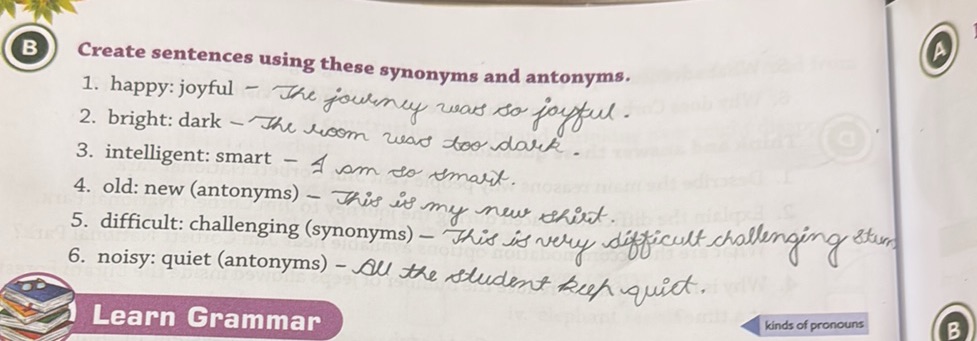 B
A
Create sentences using these synonyms and antonyms.
1. happy: joyful - The journey was so joyful.
2. bright: dark - The room was too dark.
3. intelligent: smart - I am so smart.
4. old: new (antonyms) - This is my new shirt.
5. difficult: challenging (synonyms) - This is very difficult challenging
6. noisy: quiet (antonyms) - All the student keep quiet.
Learn Grammar
kinds of pronouns
B